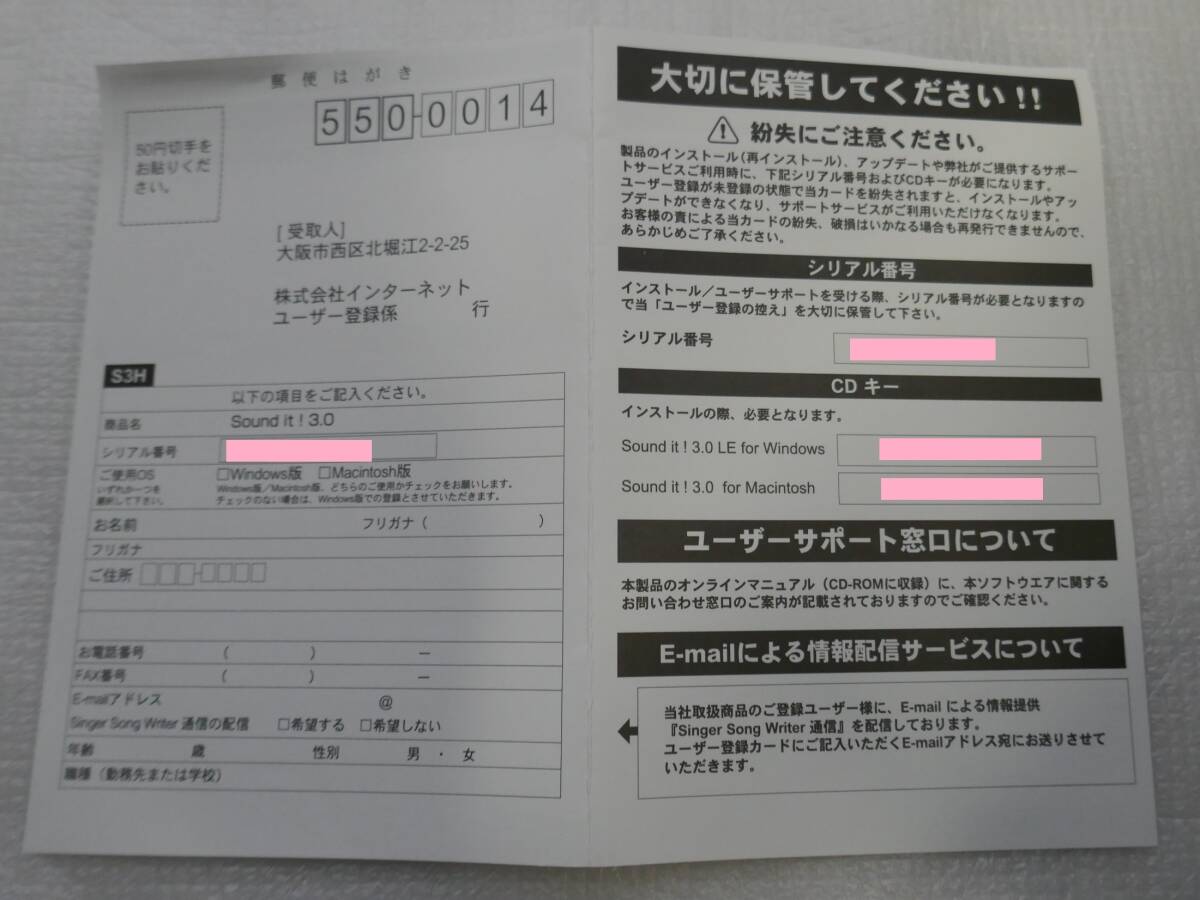 郵便はがき
550-0014
50円切手を
お貼りくだ
さい。
[ 受取人]
大阪市西区北堀江2-2-25
株式会社インターネット
ユーザー登録係 行
S3H
以下の項目をご記入ください。
商品名 Sound it ! 3.0
シリアル番号
ご使用OS □Windows版 □Macintosh版
いずれか一つを
選択して下さい。
Windows版／Macintosh版、どちらのご使用かチェックをお願いします。
チェックのない場合は、Windows版での登録とさせていただきます。
お名前 フリガナ ( )
フリガナ
ご住所 □□□-□□□□
お電話番号 ( ) ー
FAX番号 ( ) ー
E-mailアドレス @
Singer Song Writer 通信の配信 □希望する □希望しない
年齢 歳 性別 男 ・ 女
職種（勤務先または学校）
大切に保管してください !!
紛失にご注意ください。
製品のインストール（再インストール）、アップデートや弊社がご提供するサポー
トサービスご利用時に、下記シリアル番号およびCDキーが必要になります。
ユーザー登録が未登録の状態で当カードを紛失されますと、インストールやアッ
プデートができなくなり、サポートサービスがご利用いただけなくなります。
お客様の責による当カードの紛失、破損はいかなる場合も再発行できませんので、
あらかじめご了承ください。
シリアル番号
インストール／ユーザーサポートを受ける際、シリアル番号が必要となりますの
で当「ユーザー登録の控え」を大切に保管して下さい。
シリアル番号
CD キー
インストールの際、必要となります。
Sound it ! 3.0 LE for Windows
Sound it ! 3.0 for Macintosh
ユーザーサポート窓口について
本製品のオンラインマニュアル（CD-ROMに収録）に、本ソフトウエアに関する
お問い合わせ窓口のご案内が記載されておりますのでご確認ください。
E-mailによる情報配信サービスについて
当社取扱商品のご登録ユーザー様に、E-mail による情報提供
『Singer Song Writer 通信』を配信しております。
ユーザー登録カードにご記入いただくE-mailアドレス宛にお送りさせて
いただきます。